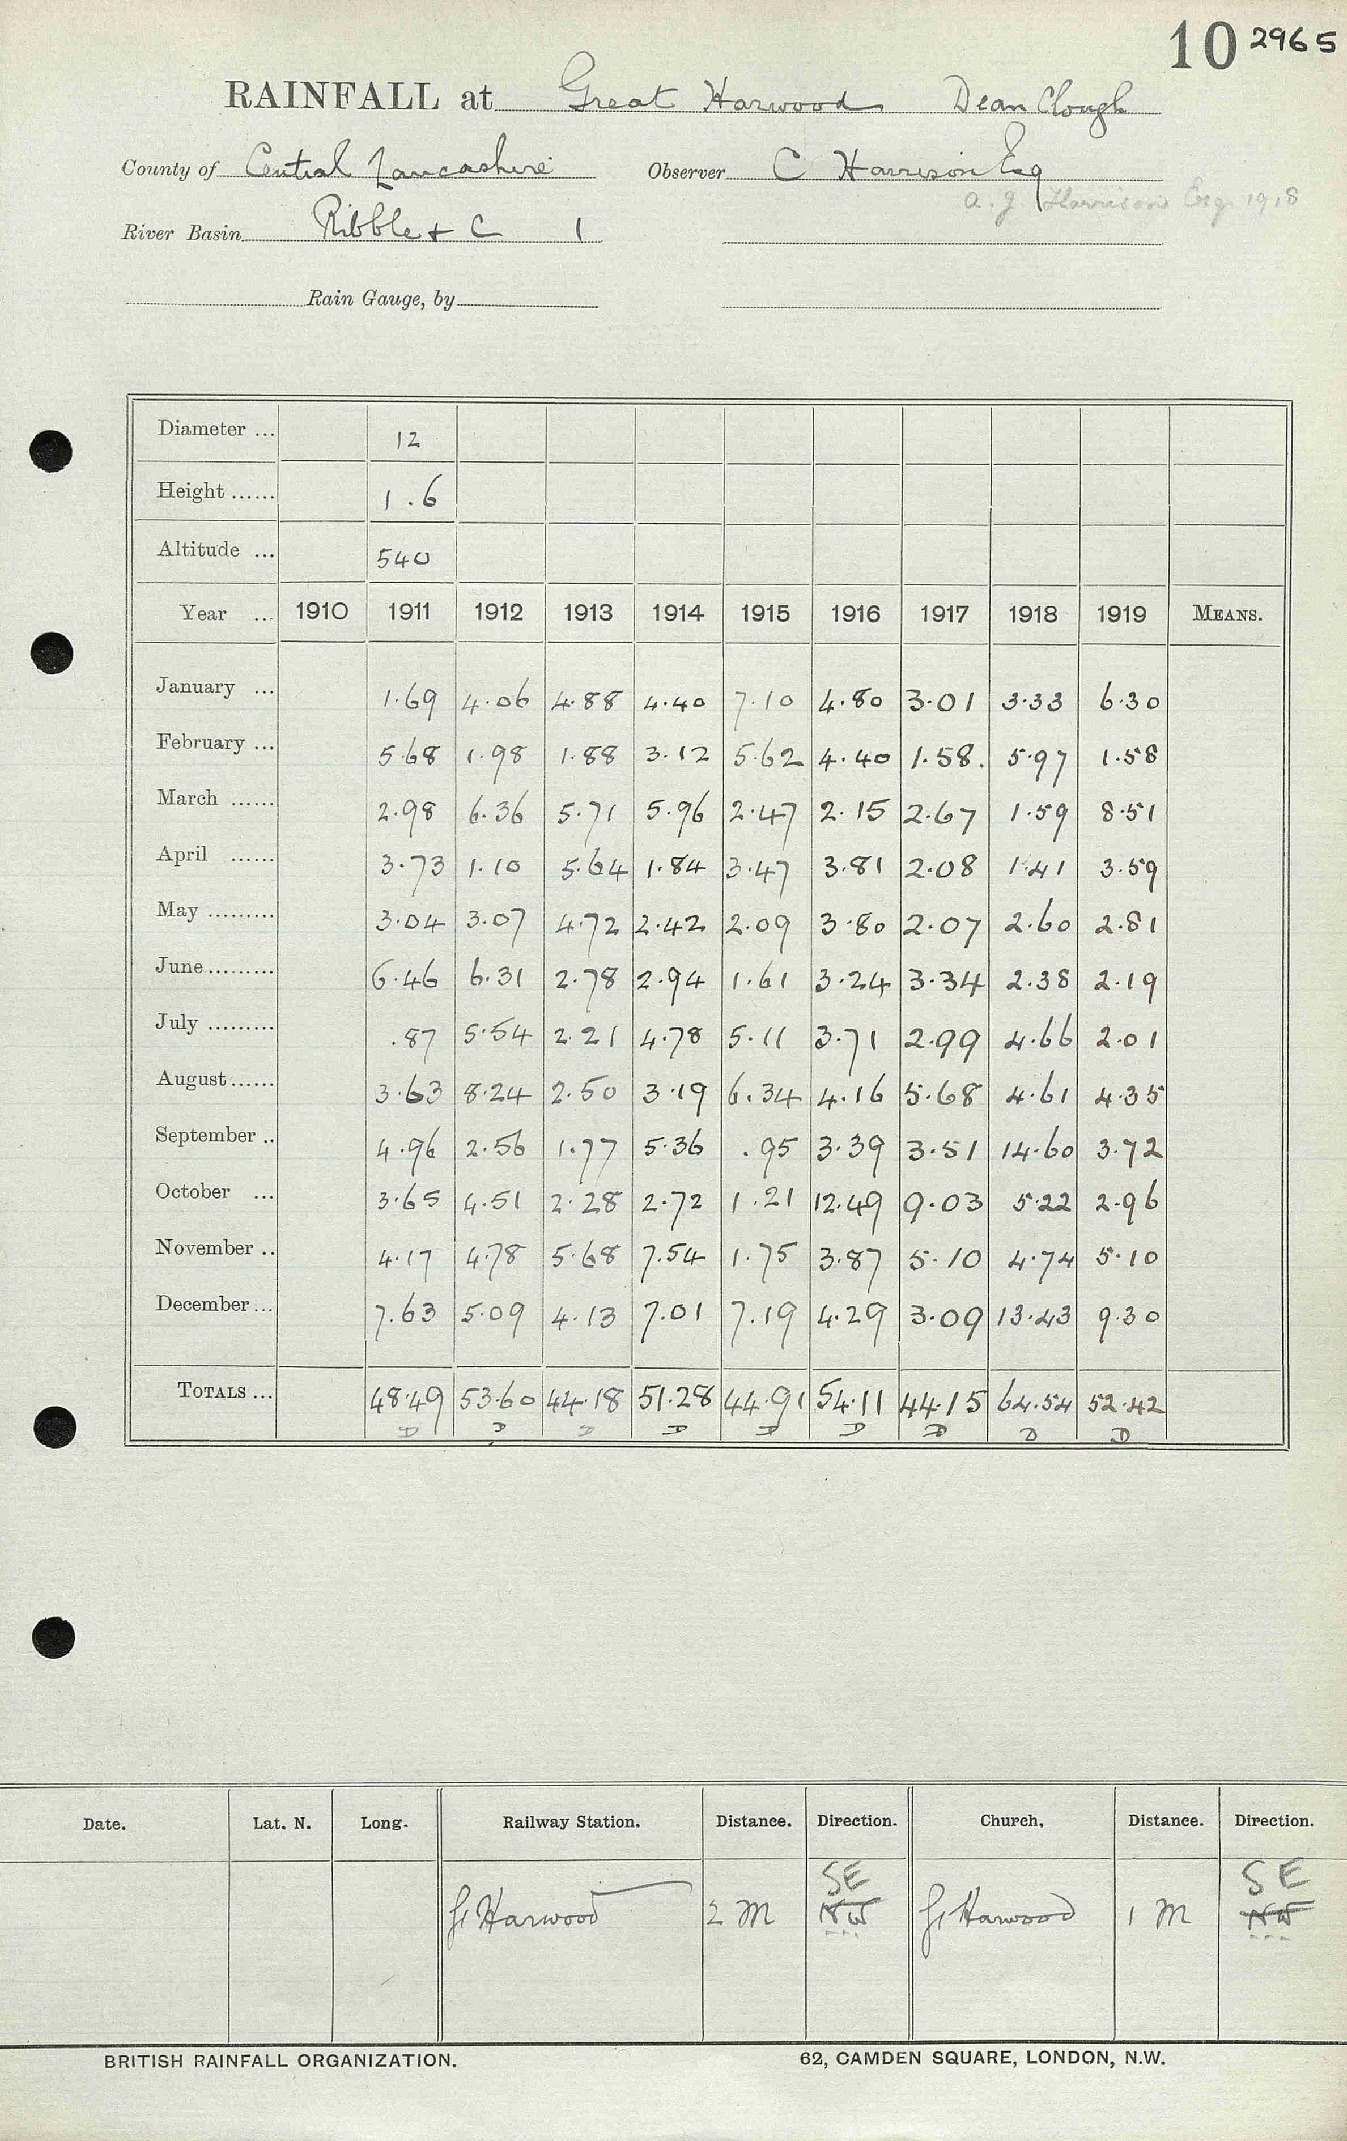 10 2965
RAINFALL at Great Harwood Dean Clough
County of Central Lancashire Observer C Harrison Esq
A. J. Harrison Esq. 1918
River Basin Ribble + C 1
Rain Gauge, by
Diameter ... 12
Height ...... 1.6
Altitude ... 540
Year ... 1910 1911 1912 1913 1914 1915 1916 1917 1918 1919 MEANS.
January ... 1.69 4.06 4.88 4.40 7.10 4.80 3.01 3.33 6.30
February ... 5.68 1.98 1.88 3.12 5.62 4.40 1.58. 5.97 1.58
March ...... 2.98 6.36 5.71 5.96 2.47 2.15 2.67 1.59 8.51
April ...... 3.73 1.10 5.64 1.84 3.47 3.81 2.08 1.41 3.59
May ......... 3.04 3.07 4.72 2.42 2.09 3.80 2.07 2.60 2.81
June......... 6.46 6.31 2.78 2.94 1.61 3.24 3.34 2.38 2.19
July ......... .87 5.54 2.21 4.78 5.11 3.71 2.99 4.66 2.01
August...... 3.63 8.24 2.50 3.19 6.34 4.16 5.68 4.61 4.35
September .. 4.96 2.56 1.77 5.36 .95 3.39 3.51 14.60 3.72
October ... 3.65 4.51 2.28 2.72 1.21 12.49 9.03 5.22 2.96
November .. 4.17 4.78 5.68 7.54 1.75 3.87 5.10 4.74 5.10
December... 7.63 5.09 4.13 7.01 7.19 4.29 3.09 13.43 9.30
TOTALS ... 48.49 53.60 44.18 51.28 44.91 54.11 44.15 64.54 52.42
D D D D D D D D D
Date. Lat. N. Long. Railway Station. Distance. Direction. Church. Distance. Direction.
SE SE
Gt Harwood 2 M NW Gt Harwood 1 M NW
BRITISH RAINFALL ORGANIZATION. 62, CAMDEN SQUARE, LONDON, N.W.